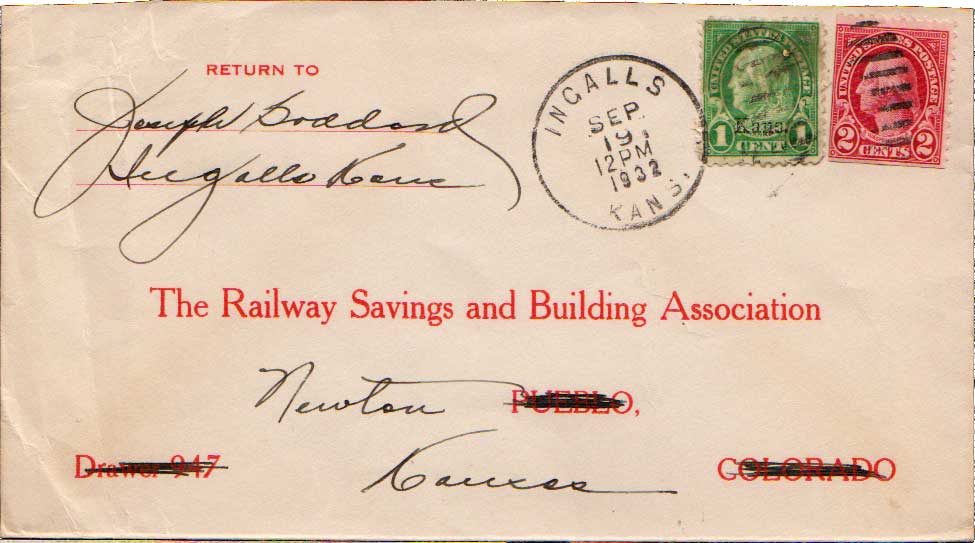 RETURN TO
Joseph Goddard
Ingalls Kans
INGALLS
SEP.
19
12 PM
1932
KANS.
UNITED STATES POSTAGE
Kans.
1 CENT 1
UNITED STATES POSTAGE
2 CENTS 2
The Railway Savings and Building Association
Newton PUEBLO,
Drawer 947 Kansas COLORADO